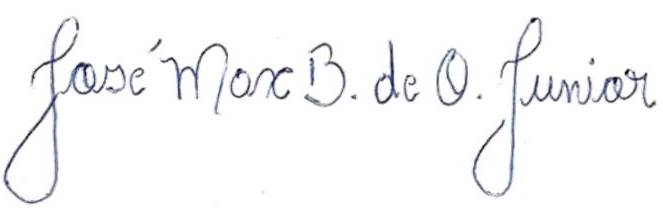 José Max B. de O. Junior